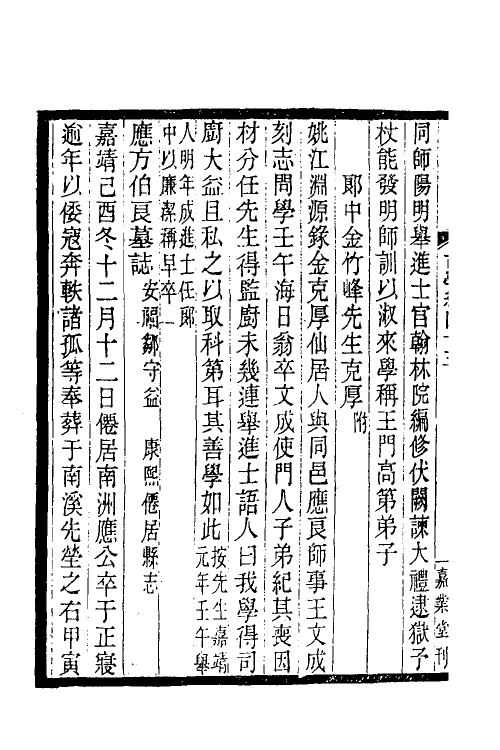 同師陽明舉進士官翰林院編修伏闕諫大禮逮獄予
杖能發明師訓以淑來學稱王門高第弟子
郞中金竹峰先生克厚附
姚江淵源錄金克厚仙居人與同邑應良師事王文成
刻志問學壬午海日翁卒文成使門人子弟紀其喪因
材分任先生得監廚未幾連舉進士語人曰我學得司
廚大益且私之以取科第耳其善學如此按先生嘉靖元年壬午舉
人明年成進士任郞中以廉潔稱早卒
應方伯良墓誌 安福鄒守益 康熙僊居縣志
嘉靖己酉冬十二月十二日僊居南洲應公卒于正寢
逾年以倭寇奔軼諸孤等奉葬于南溪先塋之右甲寅
嘉業堂刊